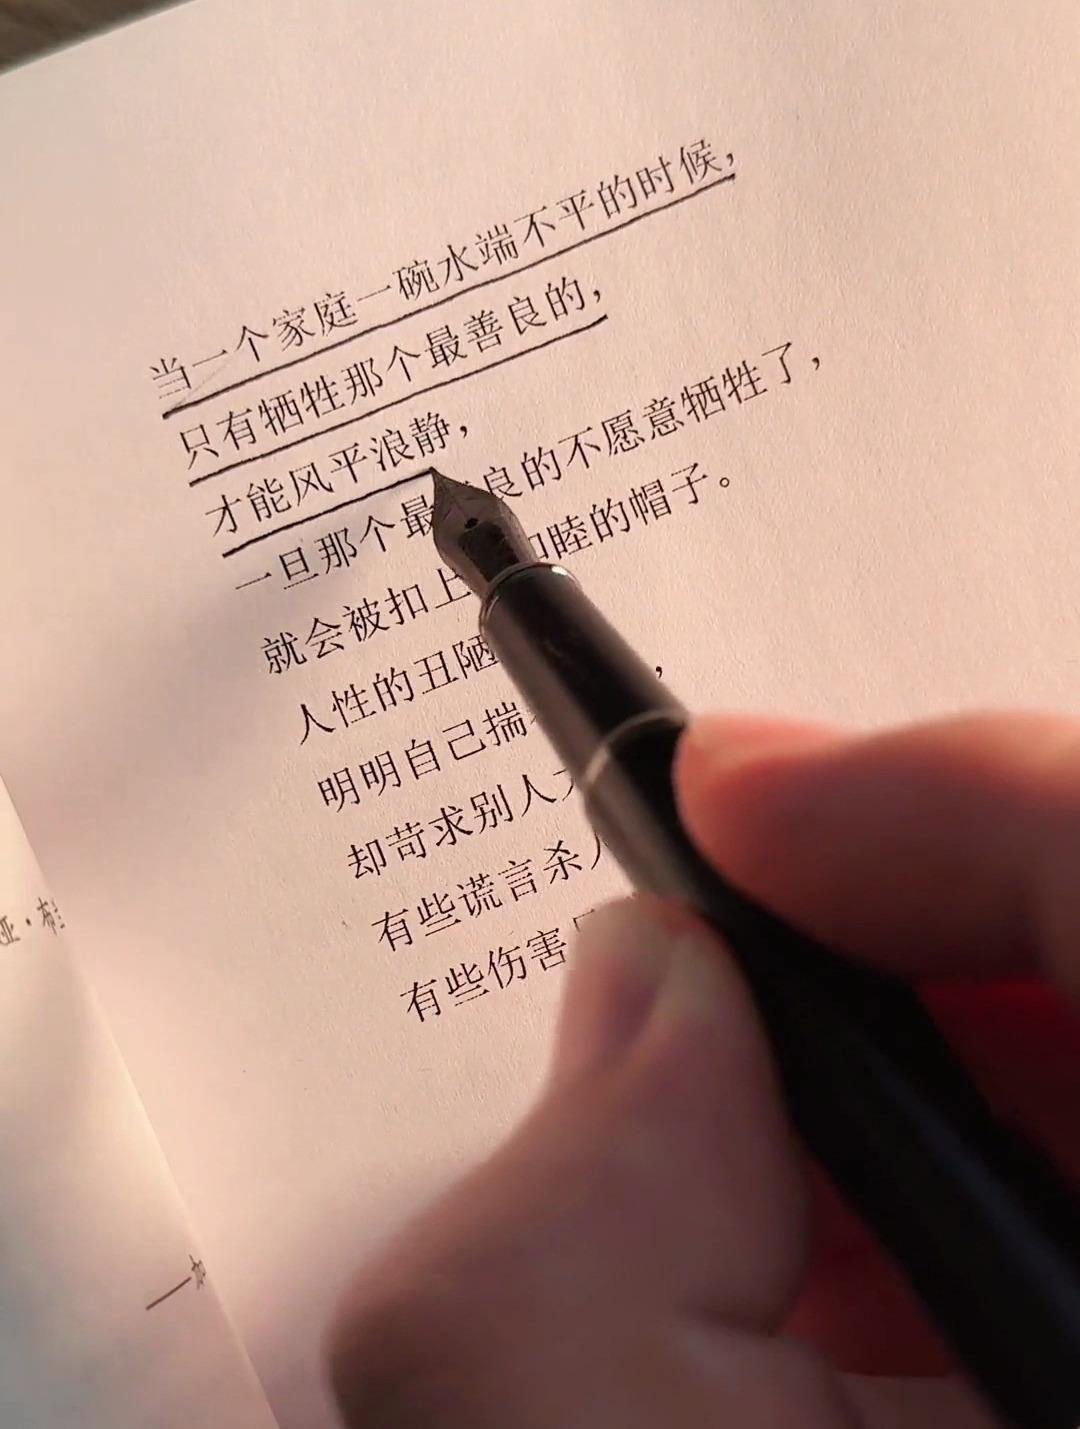 当一个家庭一碗水端不平的时候，
只有牺牲那个最善良的，
才能风平浪静，
一旦那个最善良的不愿意牺牲了，
就会被扣上 和睦的帽子。
人性的丑陋 ，
明明自己揣
却苛求别人
有些谎言杀人
有些伤害
亚·布